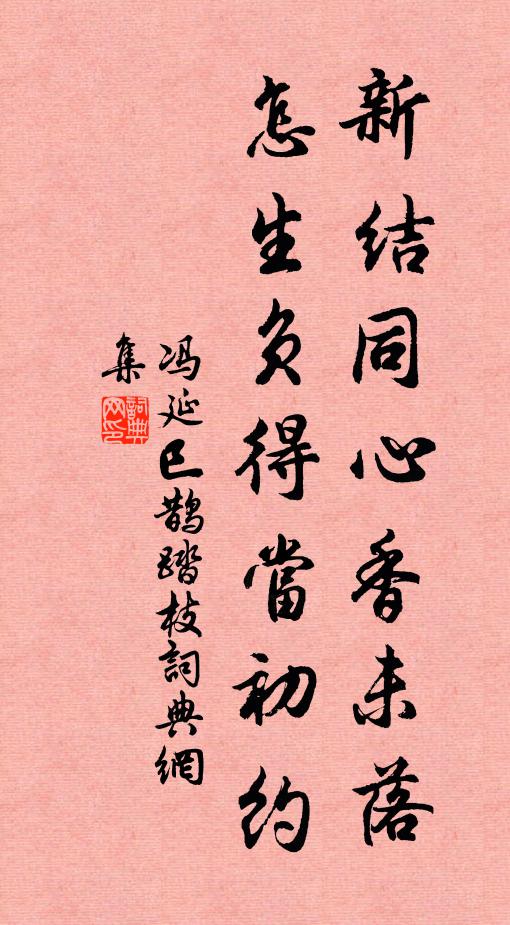 新结同心香未落
怎生负得當初约
冯延巳鹊踏枝詞典網
集
詞典
网印